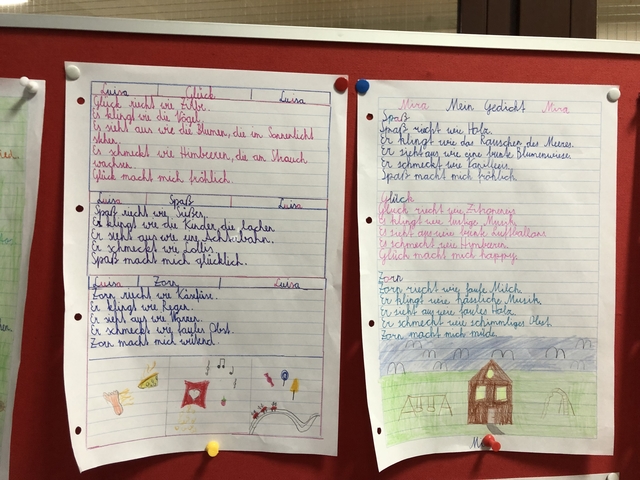 Luisa Glück Luisa
Glück riecht wie
Er klingt wie die Vögel.
Er sieht aus wie die Blumen, die im Sonnenlicht
stehen.
Er schmeckt wie Himbeeren, die am Strauch
wachsen.
Glück macht mich fröhlich.
Luisa Spaß Luisa
Spaß riecht wie Süßes.
Er klingt wie die Kinder, die lachen
Er sieht aus wie eine Achterbahn.
Er schmeckt wie Lollis
Spaß macht mich glücklich.
Luisa Zorn Luisa
Zorn riecht wie Käsfüße.
Er klingt wie Regen.
Er sieht aus wie
Er schmeckt wie faules Obst.
Zorn macht mich wütend.
Mira Mein Gedicht Mira
Spaß
Spaß riecht wie Holz.
Er klingt wie das Rauschen des Meeres.
Er sieht aus wie eine bunte Blumenwiese.
Er schmeckt wie
Spaß macht mich fröhlich
Glück
Glück riecht wie
Er klingt wie lustige Musik
Er sieht aus wie bunte Luftballons
Er schmeckt wie
Glück macht mich happy
Zorn
Zorn riecht wie faule Milch
Er klingt wie hässliche Musik
Er sieht aus wie faules Holz
Er schmeckt wie schimmliges Obst
Zorn macht mich müde